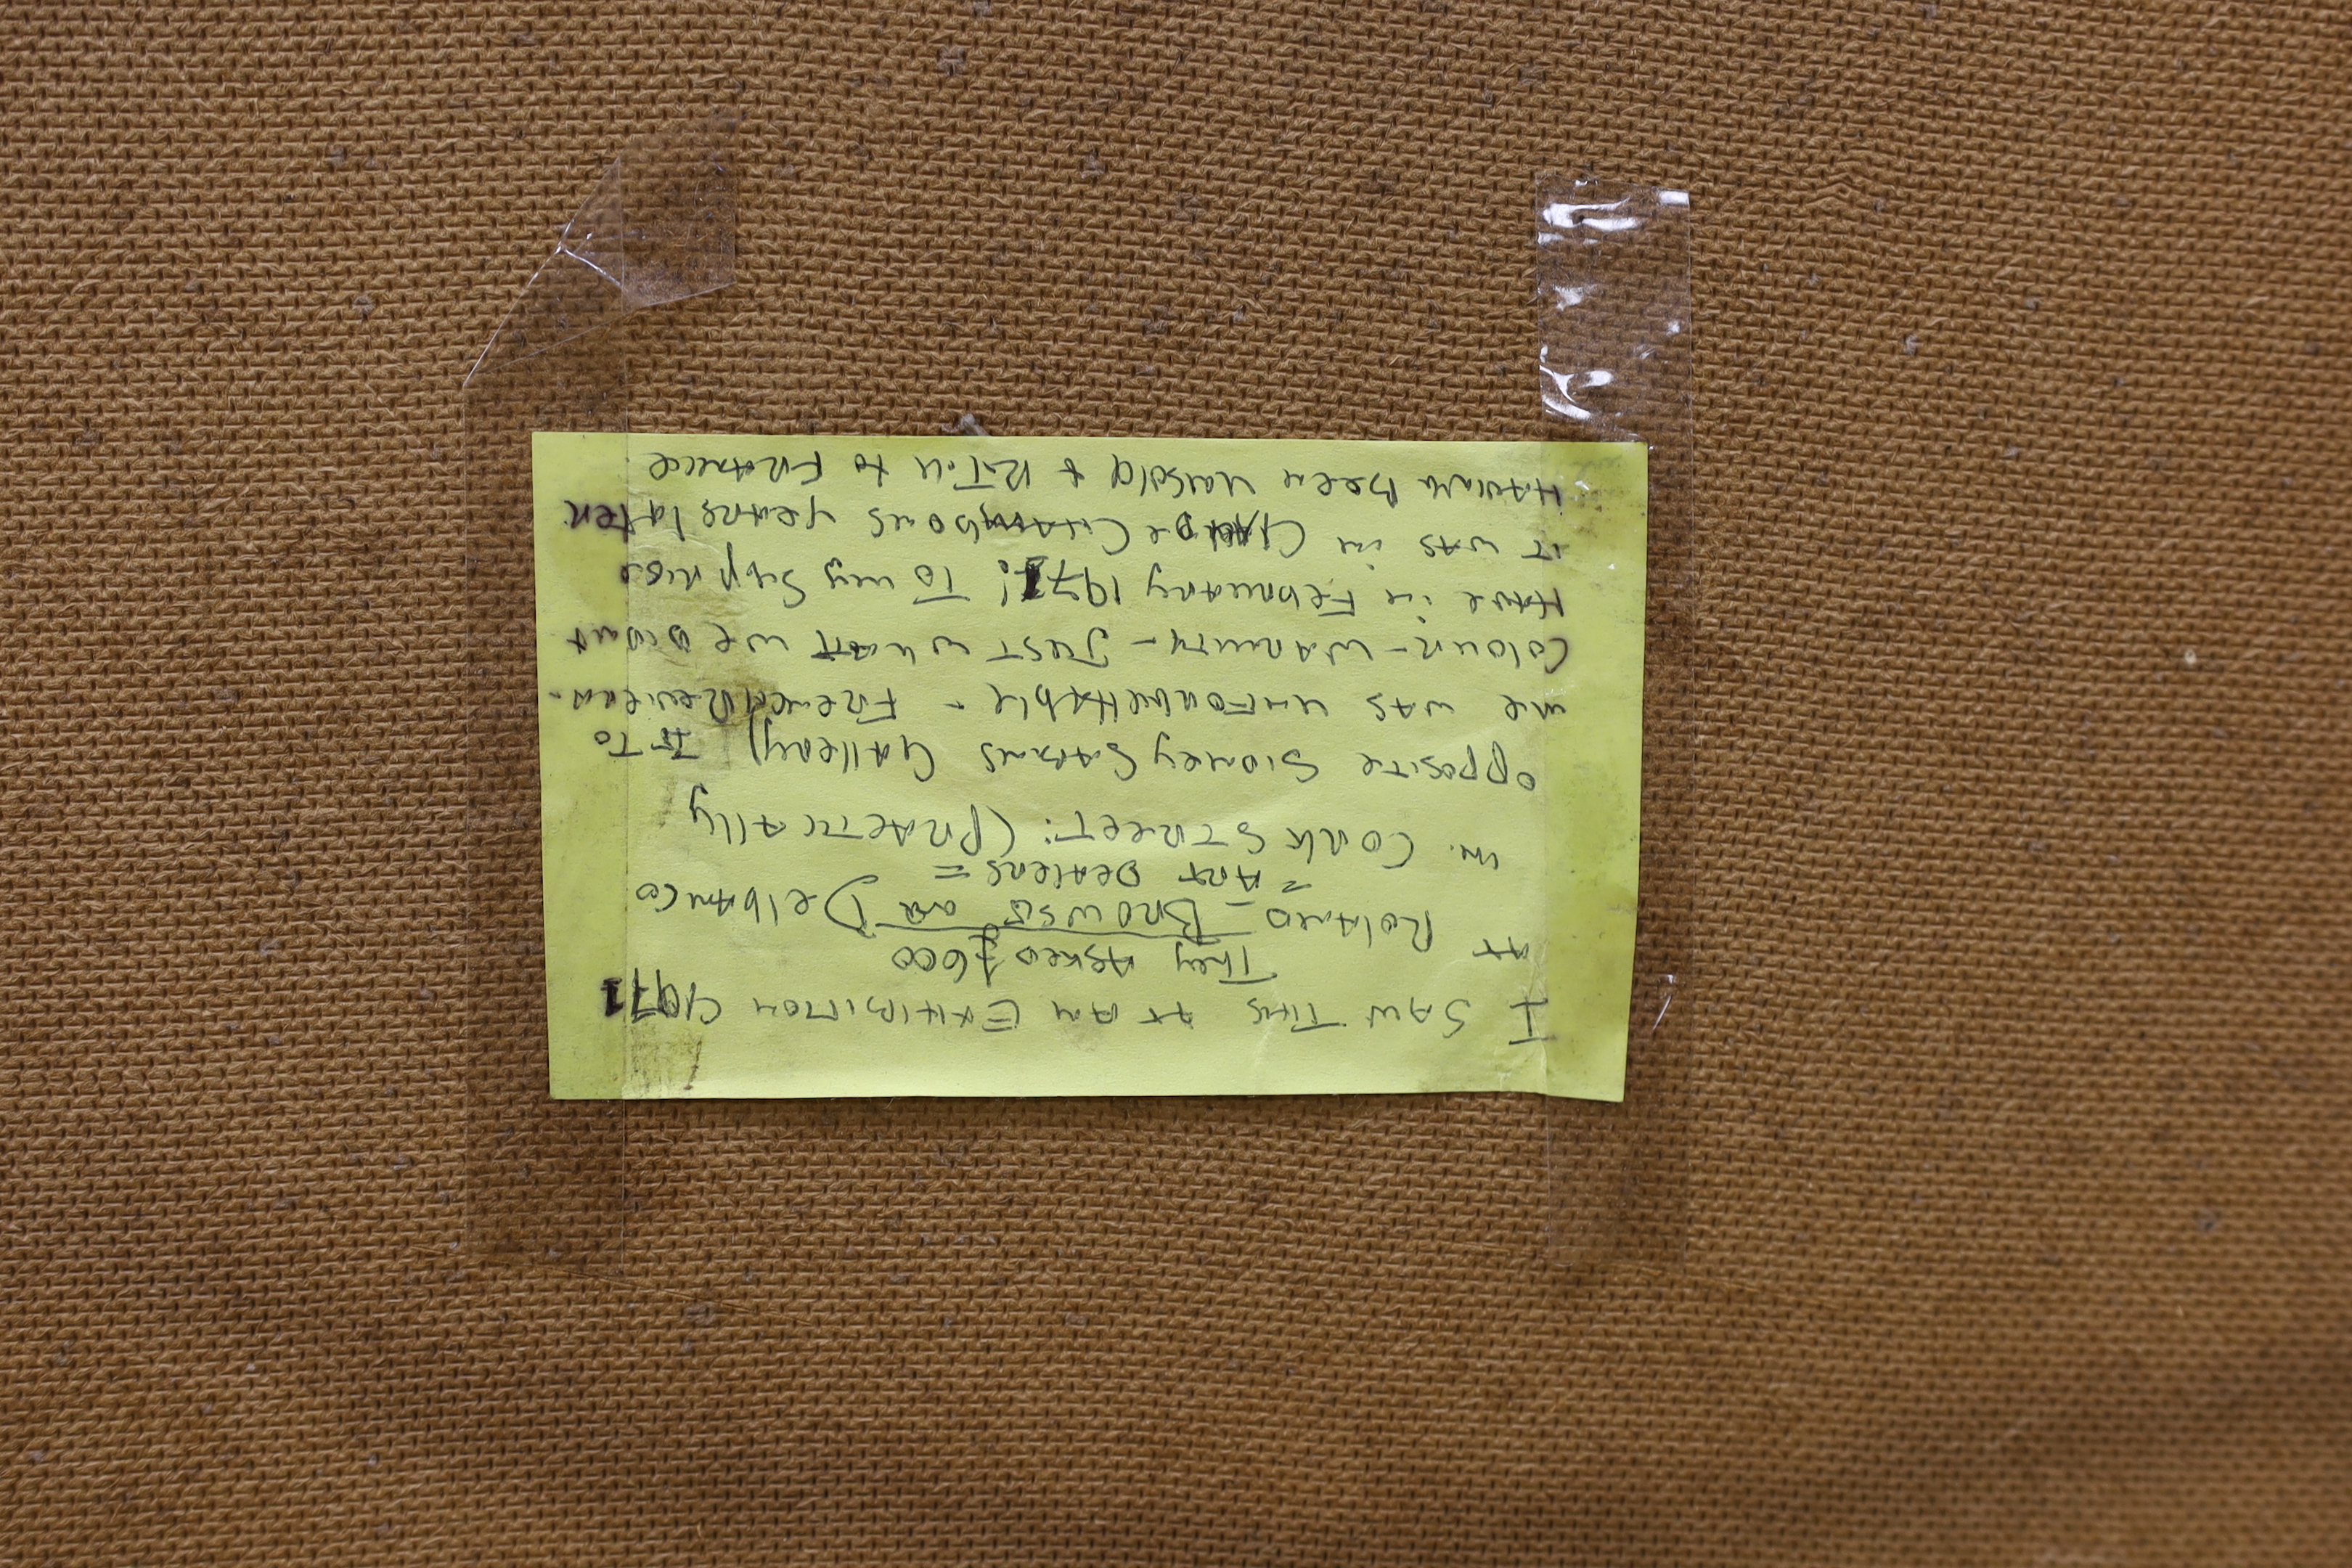 I SAW THIS AT AN EXHIBITION (1971
They Asked £600
AT ROLAND = BROWSE and Delbanco
= Art Dealers =
in. CORK STREET: (PRACTICALLY
opposite Sidney Gallery) IT TO
me was unforgettable - French
Colour - WARMTH - JUST what we didnt
Have in February 1971! To my Suppriee
it was in years later.
Having Been Unsold & R.T.N to France